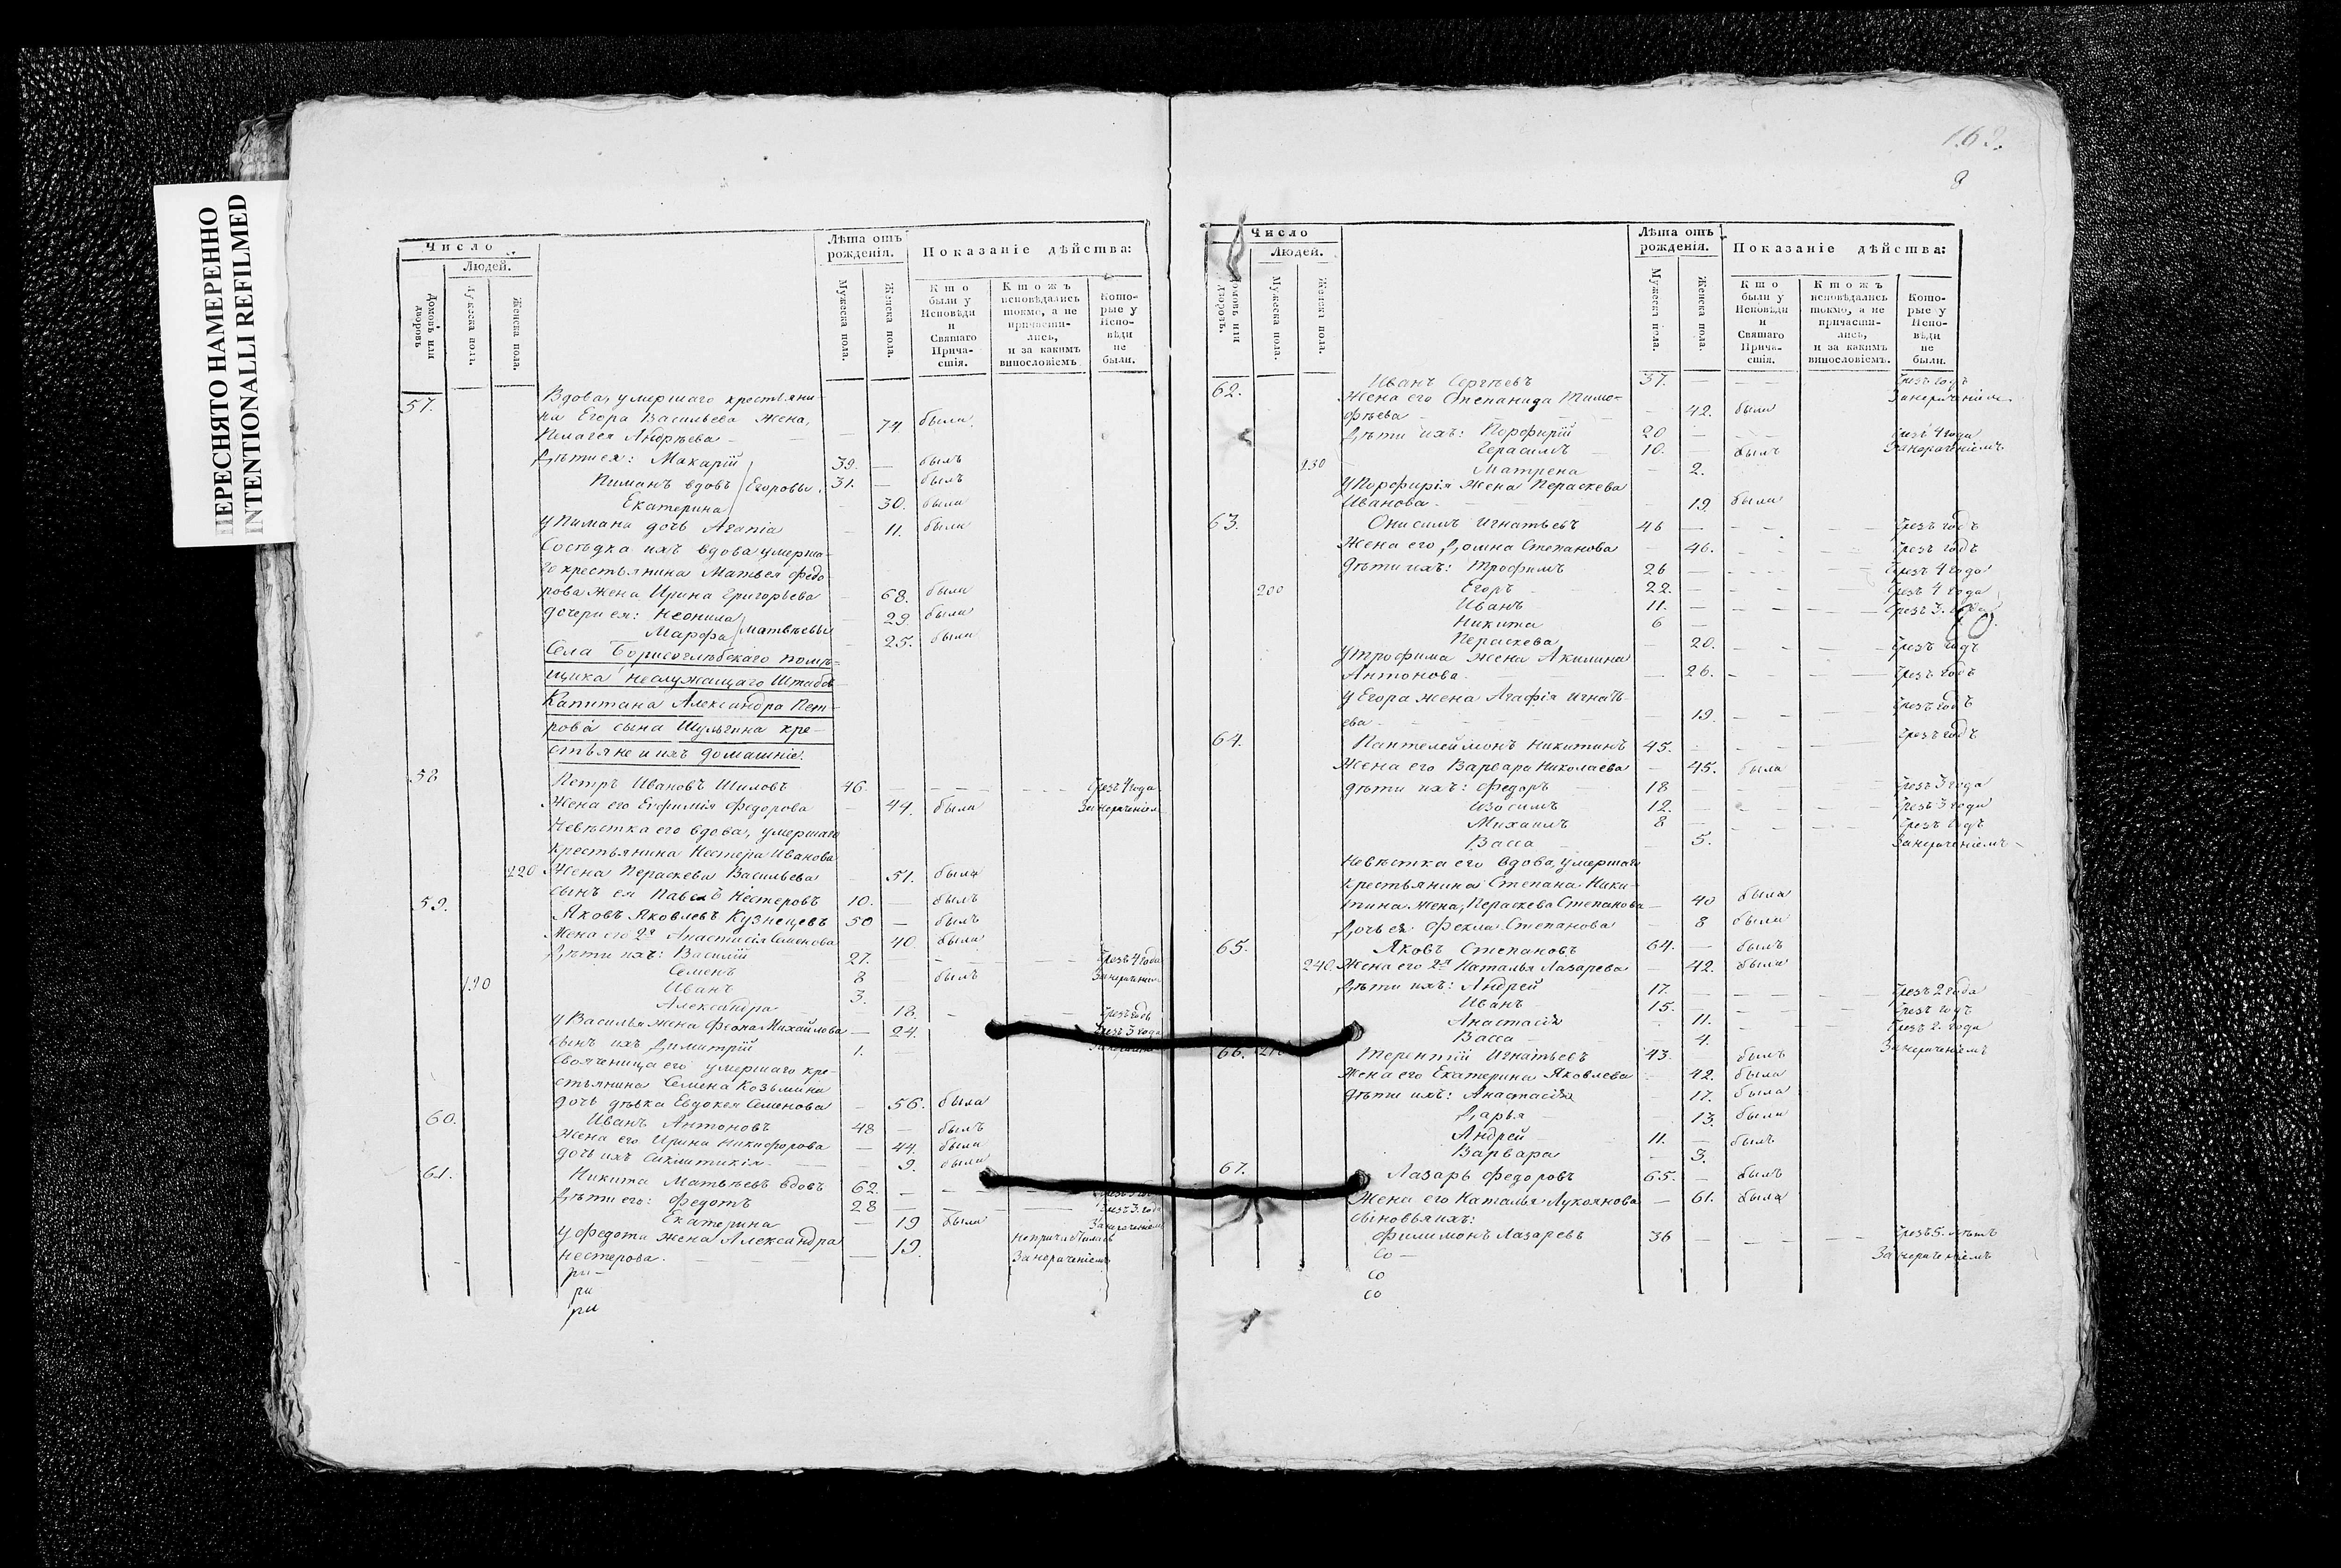 ПЕРЕСНЯТО НАМЕРЕННО
INTENTIONALLI REFILMED
Число
Людей.
Домовъ или дворовъ
Мужеска полъ.
Женска пола.
Лѣта отъ рожденія.
Мужеска пола.
Женска пола.
Показаніе дѣйства:
Кто были у Исповѣди и Святаго Причастія.
Ктожъ исповѣдались токмо, а не причастились, и за какимъ винословіемъ
Которые у Исповѣди не были.
57. Вдова, умершаго крестьяни
на Егора Васильева жена,
Пелагея Андрѣева — 74 была.
Дѣти ея: Макарій 39. — былъ
Пиманъ вдовъ Егоровы. 31. — былъ
Екатерина — 30. была
У Пимана дочь Агапіа — 11. была
Сосѣдка ихъ вдова умерша
го крестьянина Матвея Федо
рова жена Ирина Григорьева — 68. была
дочери ея: Неонила — 29. была
Марфа Матвѣевы — 25. была
Села Борисоглѣбскаго помѣ-
щика неслужащаго Штабсъ
Капитана Александра Пет-
рова сына Шульгина кре-
стьяне и ихъ домашніе.
58 Петръ Ивановъ Шиловъ 46. — — — Чрезъ 4 года
Жена его Евфимія Федорова — 44. была За нераченіем
Невѣстка его вдова, умершаго
крестьянина Нестера Иванова
220 Жена Пераскева Васильева — 51. была
сынъ ея Павелъ Нестеровъ 10. — былъ
59. Яковъ Яковлевъ Кузнецевъ 50 — былъ
Жена его 2я Анастасія Семенова 40. была
Дѣти ихъ: Василій 27. — — — Чрезъ 4 года
Семенъ 8 былъ За нераченіем
190 Иванъ 3.
Александра 18. — Чрезъ годъ
У Василья жена Феона Михайлова — 24. Чрезъ 3 года
сынъ ихъ Димитрій 1. —
Свояченица его умершаго кре-
стьянина Семена Козьмина
дочь дѣвка Евдокея Семенова — 56. была
60. Иванъ Антоновъ 48 — былъ
Жена его Ирина Никифорова — 44. была
дочь ихъ — 9. была
61. Никита Матвѣевъ вдовъ 62. — — —
Дѣти его: Федотъ 28 — — — Чрезъ 3. года
Екатерина — 19 была За нераченіем
У Федота жена Александра — 19. не причастилась
Нестерова. — За нераченіемъ
ри-
ри
ри
162.
8
Число
Людей.
Домовъ или дворовъ.
Мужеска пола.
Женска пола.
Лѣта отъ рожденія.
Мужеска пола.
Женска пола.
Показаніе дѣйства:
Кто были у Исповѣди и Святаго Причастія.
Ктожъ исповѣдались токмо, а не причастились, и за какимъ винословіемъ.
Которые у Исповѣди не были.
62. Иванъ Сергѣевъ 37. — — — Чрезъ годъ
Жена его Степанида Тимо- За нераченіем
фѣева — 42. была
Дѣти ихъ: Порфирій 20 — — — Чрезъ 4 года
Герасимъ 10. — былъ За нераченіемъ
230 Матрена — 2.
У Порфирія жена Пераскева
Иванова — 19. была
63. Онисимъ Игнатьевъ 46 — — — Чрезъ годъ
Жена его Домна Степанова — 46. — — Чрезъ годъ
Дѣти ихъ: Трофимъ 26 — — — Чрезъ 4 года
200 Егоръ 22. — — — Чрезъ 4 года
Иванъ 11. — — — Чрезъ 3. года
Никита 6 —
Пераскева — 20. — — Чрезъ годъ
У Трофима жена Акилина
Антонова. — 26. — — Чрезъ годъ
У Егора жена Агафія Игнать
ева — 19. — — Чрезъ годъ
64. Пантелеймонъ Никитинъ 45. — — Чрезъ годъ
Жена его Варвара Николаева — 45. была
Дѣти ихъ: Федоръ 18 — — Чрезъ 3 года
Изосимъ 12. — — Чрезъ 3 года
Михаилъ 8 — — — Чрезъ годъ
Васса — 5. За нераченіемъ
Невѣстка его вдова, умершаго
крестьянина Степана Ники-
тина жена, Пераскева Степанова — 40 была
Дочь ея Фекла Степанова — 8 была
65. Яковъ Степановъ 64. — былъ
240. Жена его 2я Наталья Лазарева — 42. была
Дѣти ихъ: Андрей 17. — — — Чрезъ 2 года
Иванъ 15. — — Чрезъ годъ
Анастасія 11. — — Чрезъ 2. года
Васса — 4. За нераченіемъ
66. Терентій Игнатьевъ 43. — былъ
Жена его Екатерина Яковлева — 42. была
Дѣти ихъ: Анастасія — 17. была
Дарья — 13. была
Андрей 11. — былъ
Варвара — 3.
67. Лазарь Федоровъ 65. — былъ
Жена его Наталья Лукоянова — 61. была
Сыновья ихъ:
Филимонъ Лазаревъ 36 — — — Чрезъ 5. лѣтъ
Со — За нераченіемъ
со
со